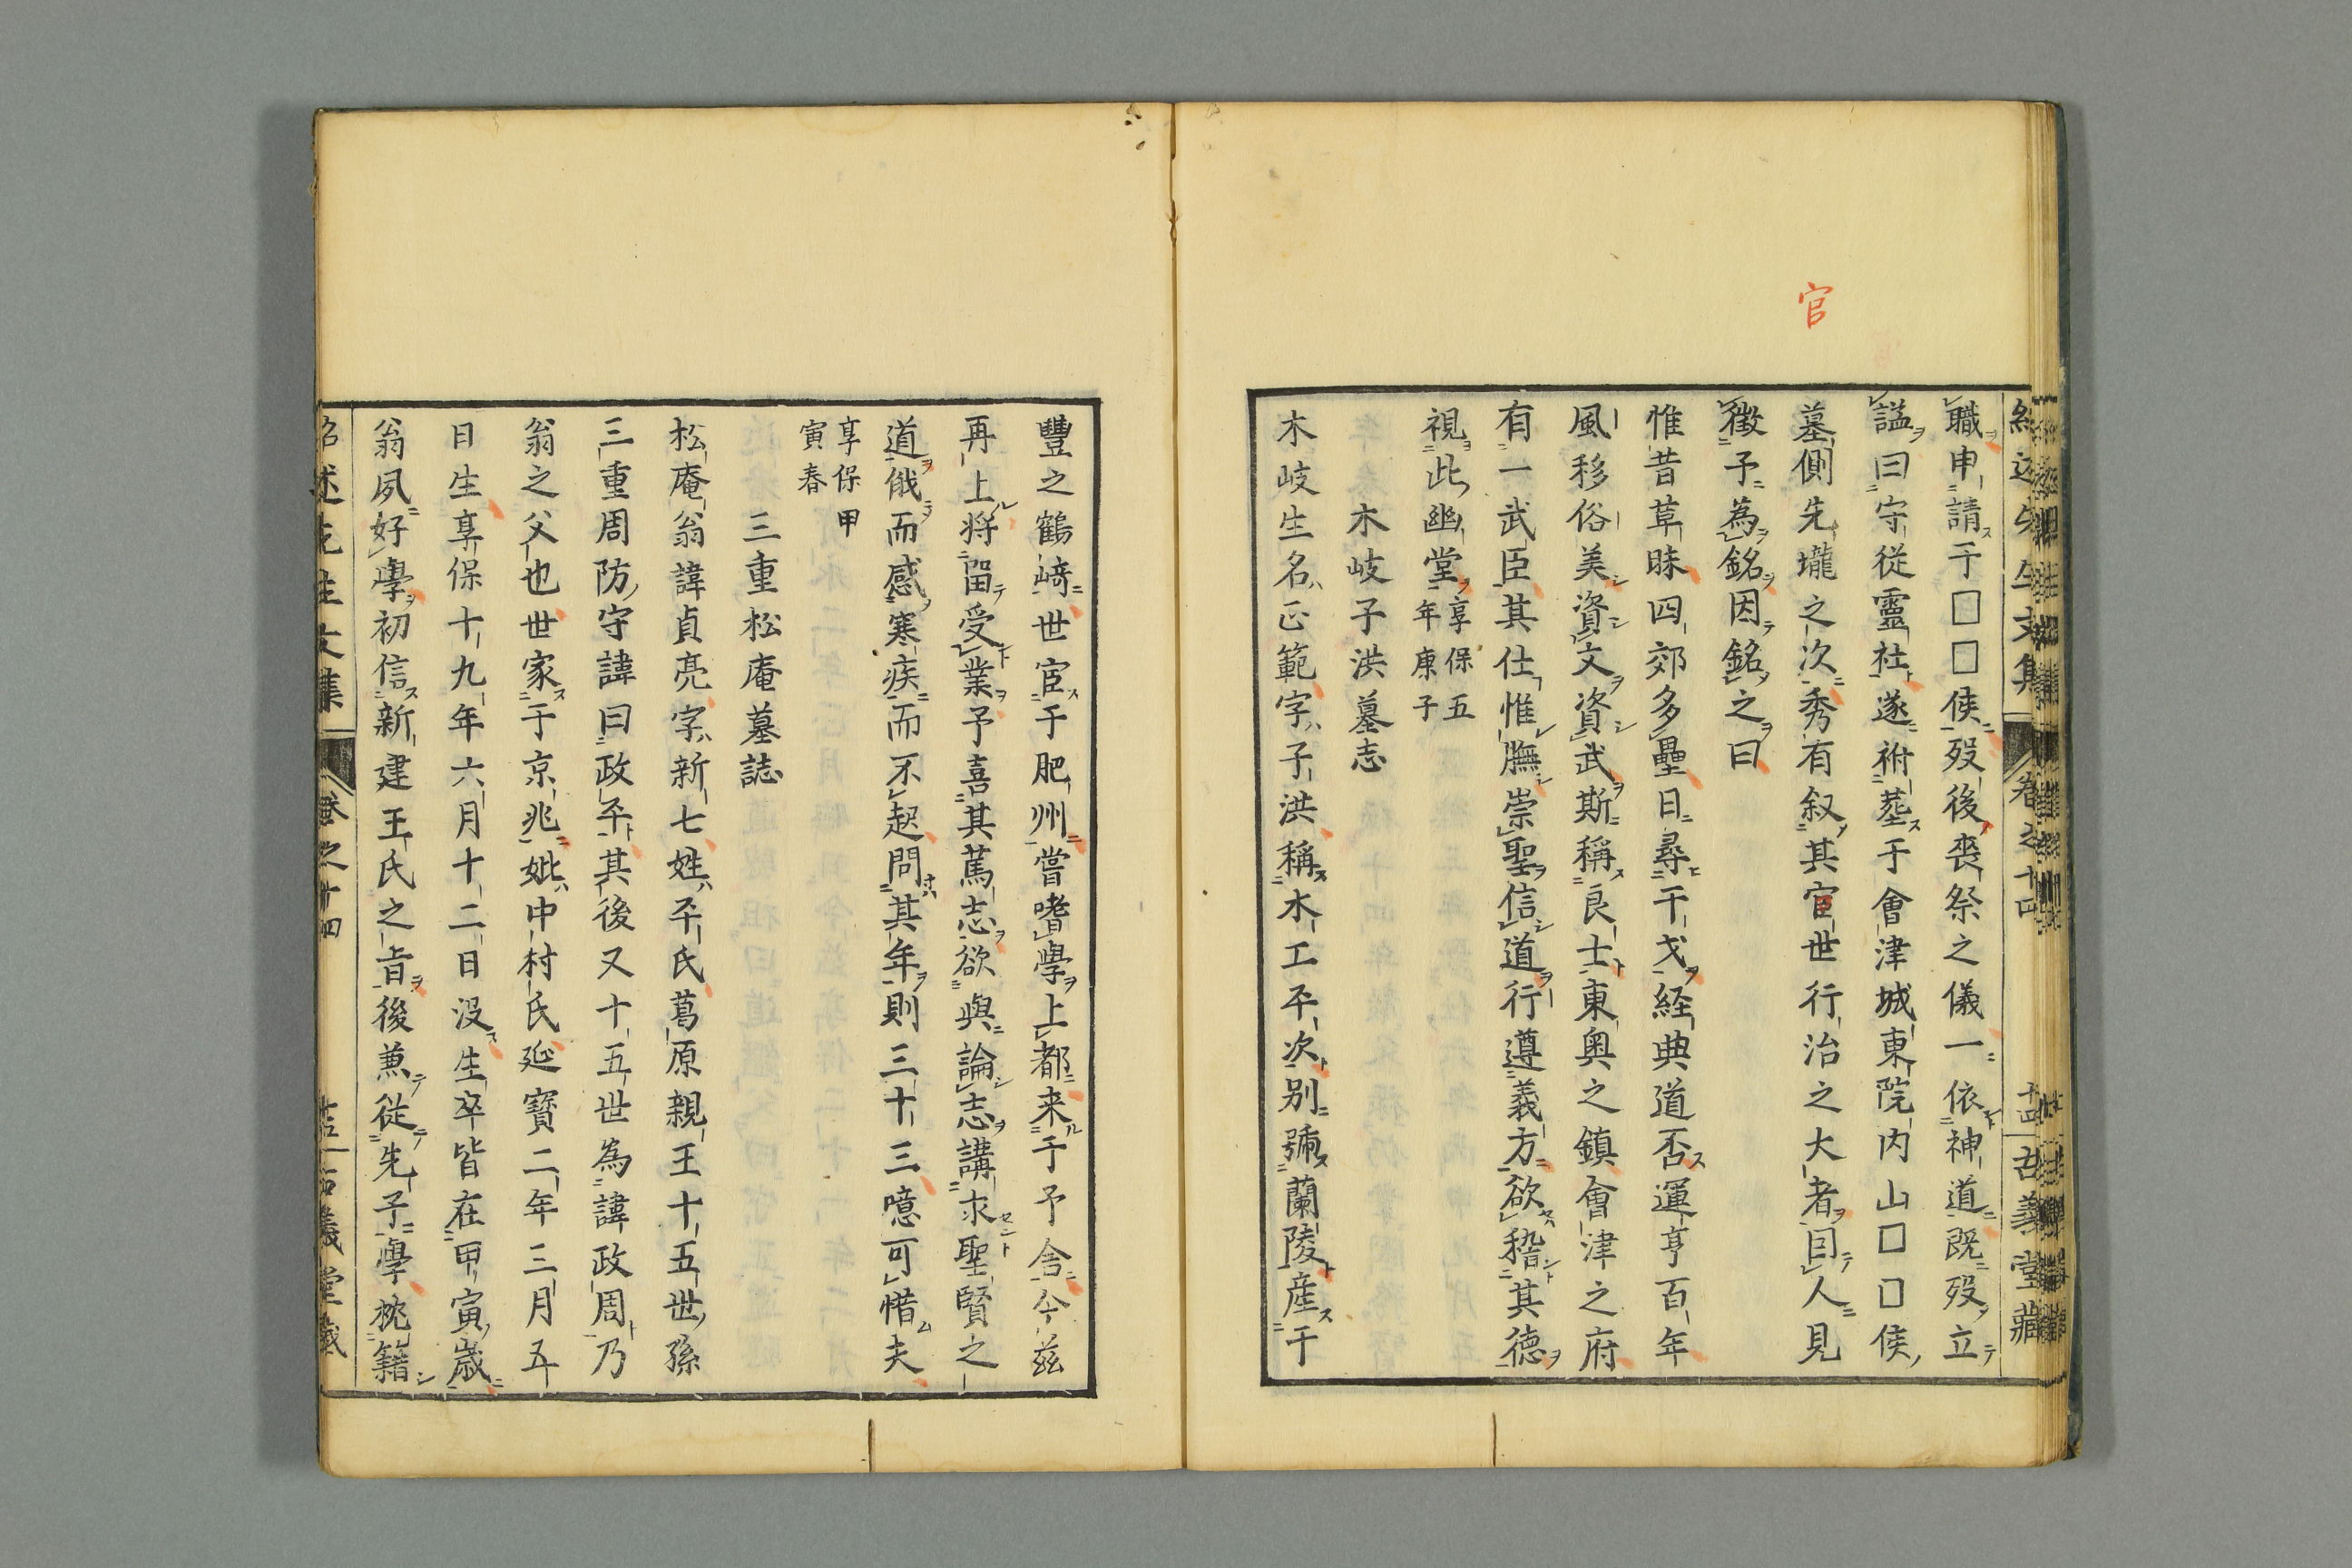 官
職申請于□□侯歿後喪祭之儀一依神道既歿立
謚曰守從靈社遂祔葬于會津城東院内山□□侯
墓側先壠之次秀有叙其官世行治之大者因人見
徵予為銘因銘之曰
惟昔草昧四郊多壘日尋干戈經典道否運亨百年
風移俗美資文資武斯稱良士東奥之鎮會津之府
有一武臣其仕惟膴崇聖信道行遵義方欲稽其德
視此幽堂享保五年庚子
木岐子洪墓志
木岐生名正範字子洪稱木工平次别號蘭陵産于
豐之鶴﨑世宦于肥州嘗嗜學上都来于予舍今茲
再上將留受業予喜其篤志欲與論志講求聖賢之
道俄而感寒疾而不起問其年則三十三噫可惜夫
享保甲寅春
三重松庵墓誌
松庵翁諱貞亮字新七姓平氏葛原親王十五世孫
三重周防守諱曰政平其後又十五世為諱政周乃
翁之父也世家于京兆妣中村氏延寶二年三月五
日生享保十九年六月十二日没生卒皆在甲寅歳
翁夙好學初信新建王氏之旨後兼從先子學枕籍
紹述先生文集 卷之十四 古義堂藏